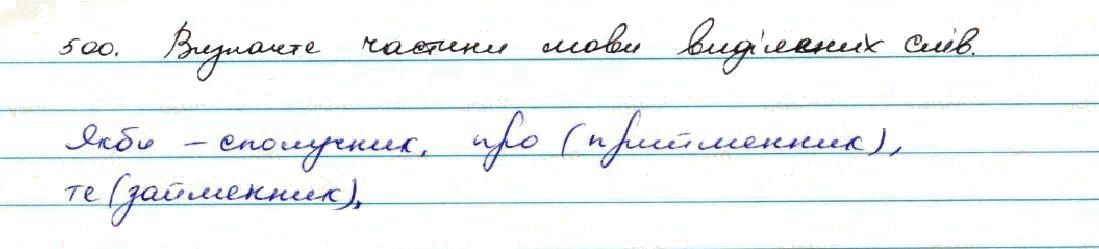 500. Визначте частини мови виділених слів.
Якби – сполучник, про (прийменник),
те (займенник),